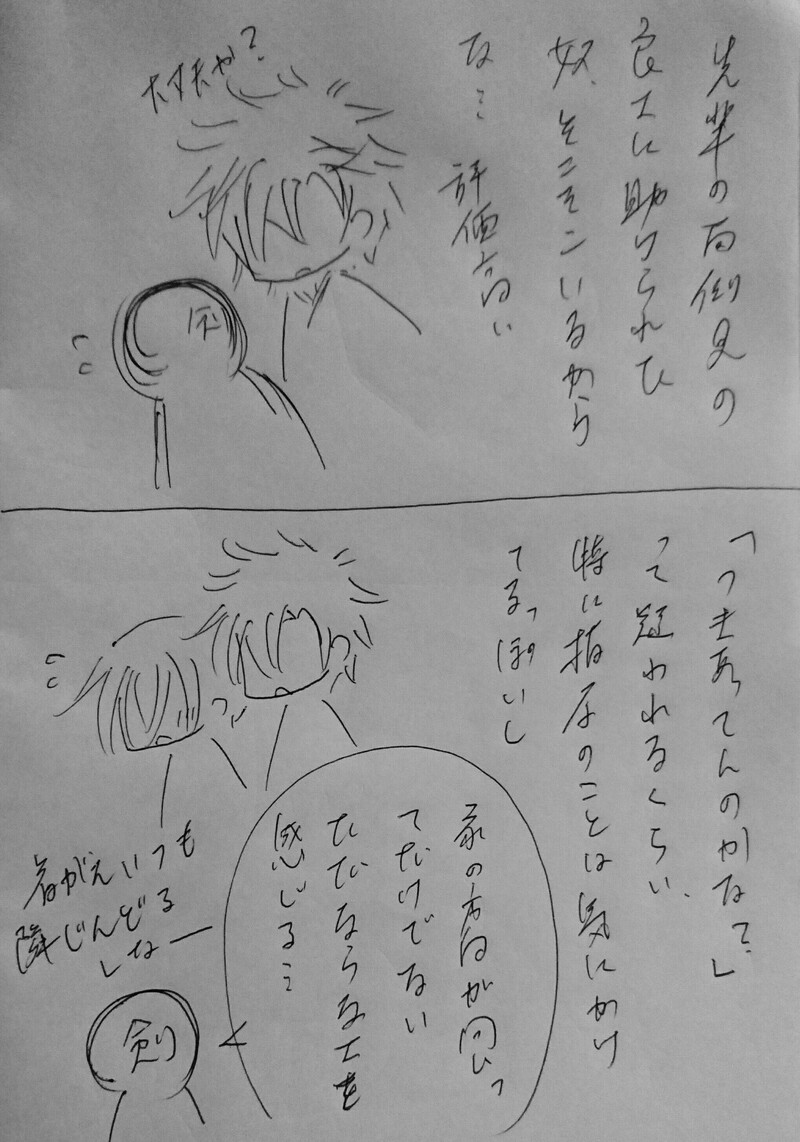 先輩の面倒見の
良さに助けられた
奴、そこそこいるから
な… 評価高い
大丈夫か?
灰
「つきあってんのかな?」
って疑われるくらい、
特に指原のことは気にかけ
てるっぽいし
家の方向が同じっ
てだけでない
ただならなさを
感じる…
着がえいつも
隣じんどる
しなー
剣